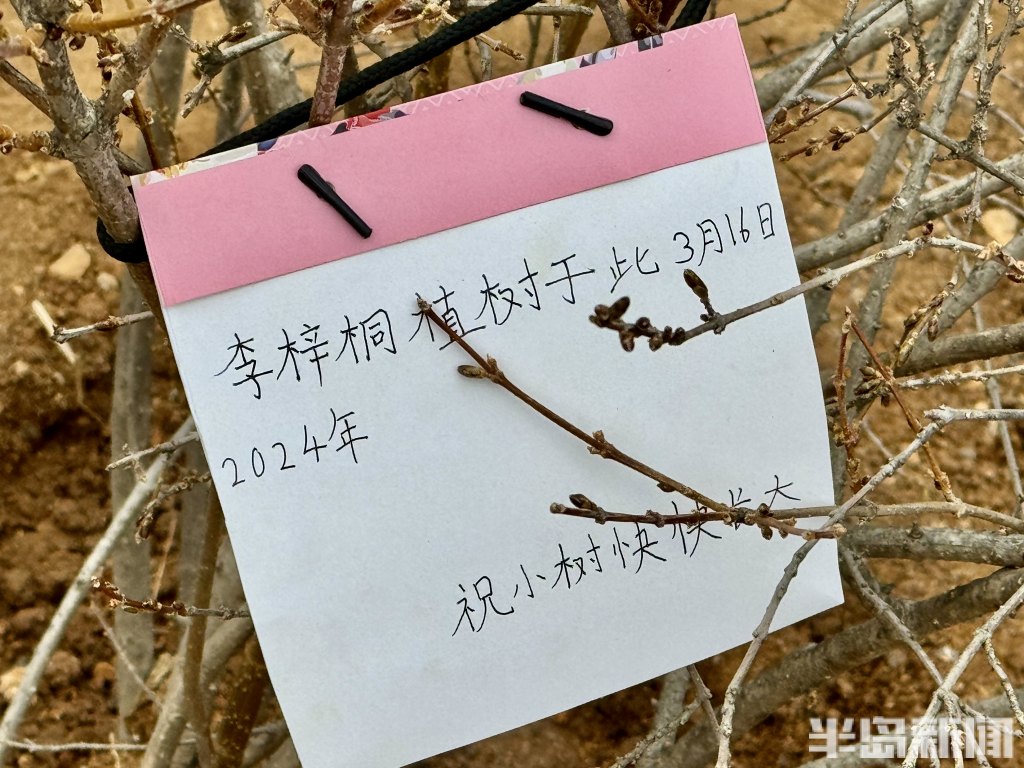 李梓桐植树于此 3月16日
2024年
祝小树快快长大
半岛新闻